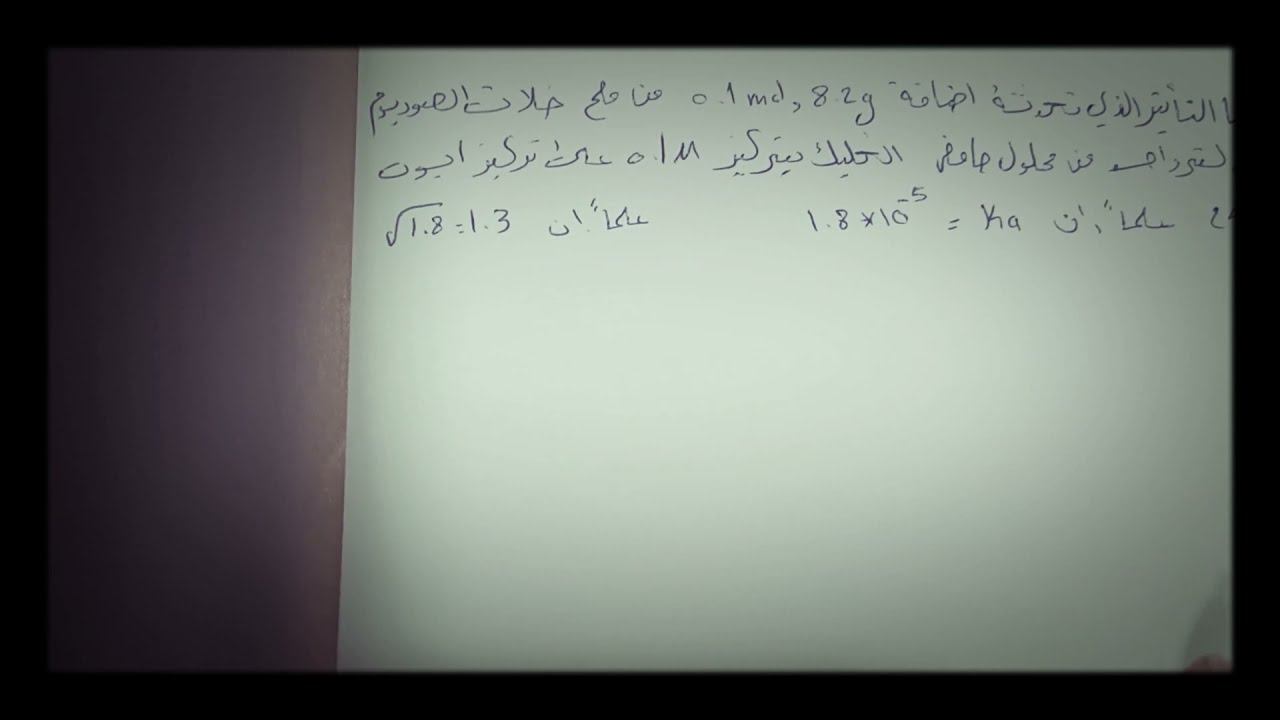 التأثير الذي تحدثة اضافة 8.2g و 0.1 mol من ملح خلات الصوديوم
لتر واحد من محلول حامض الخليك بتركيز 0.1M على تركيز ايون
علماً ان Ka = 1.8*10⁻⁵ علماً ان √1.8=1.3